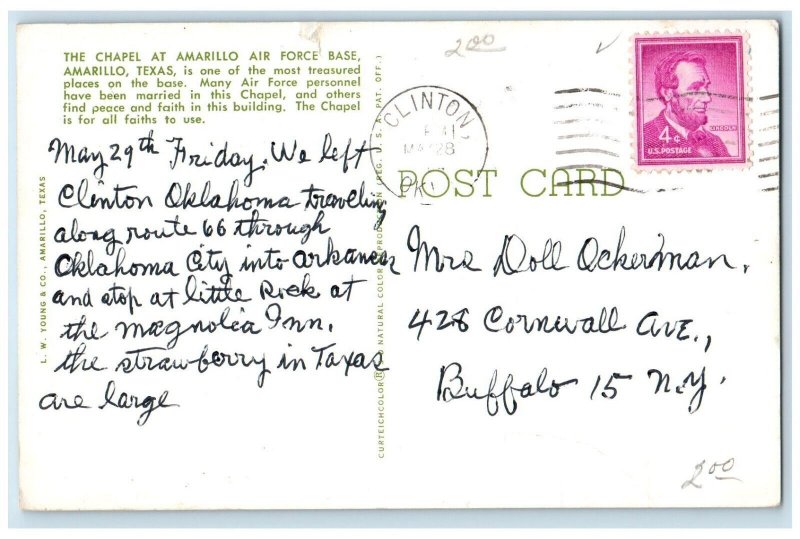 THE CHAPEL AT AMARILLO AIR FORCE BASE,
AMARILLO, TEXAS, is one of the most treasured
places on the base. Many Air Force personnel
have been married in this Chapel, and others
find peace and faith in this building. The Chapel
is for all faiths to use.
May 29th Friday. We left
Clinton Oklahoma traveling
along route 66 through
Oklahoma City into arkansas
and stop at little Rock at
the magnolia Inn.
the strawberry in Taxas
are large
L. W. YOUNG & CO., AMARILLO, TEXAS
CURTEICHCOLOR® NATURAL COLOR REPRODUCTION (REG. U.S.A. PAT. OFF.)
2 00
CLINTON,
28
OKL
4¢
LINCOLN
U.S. POSTAGE
POST CARD
Mrs Doll Ockerman,
428 Cornwall Ave.,
Buffalo 15 N.Y.
2 00